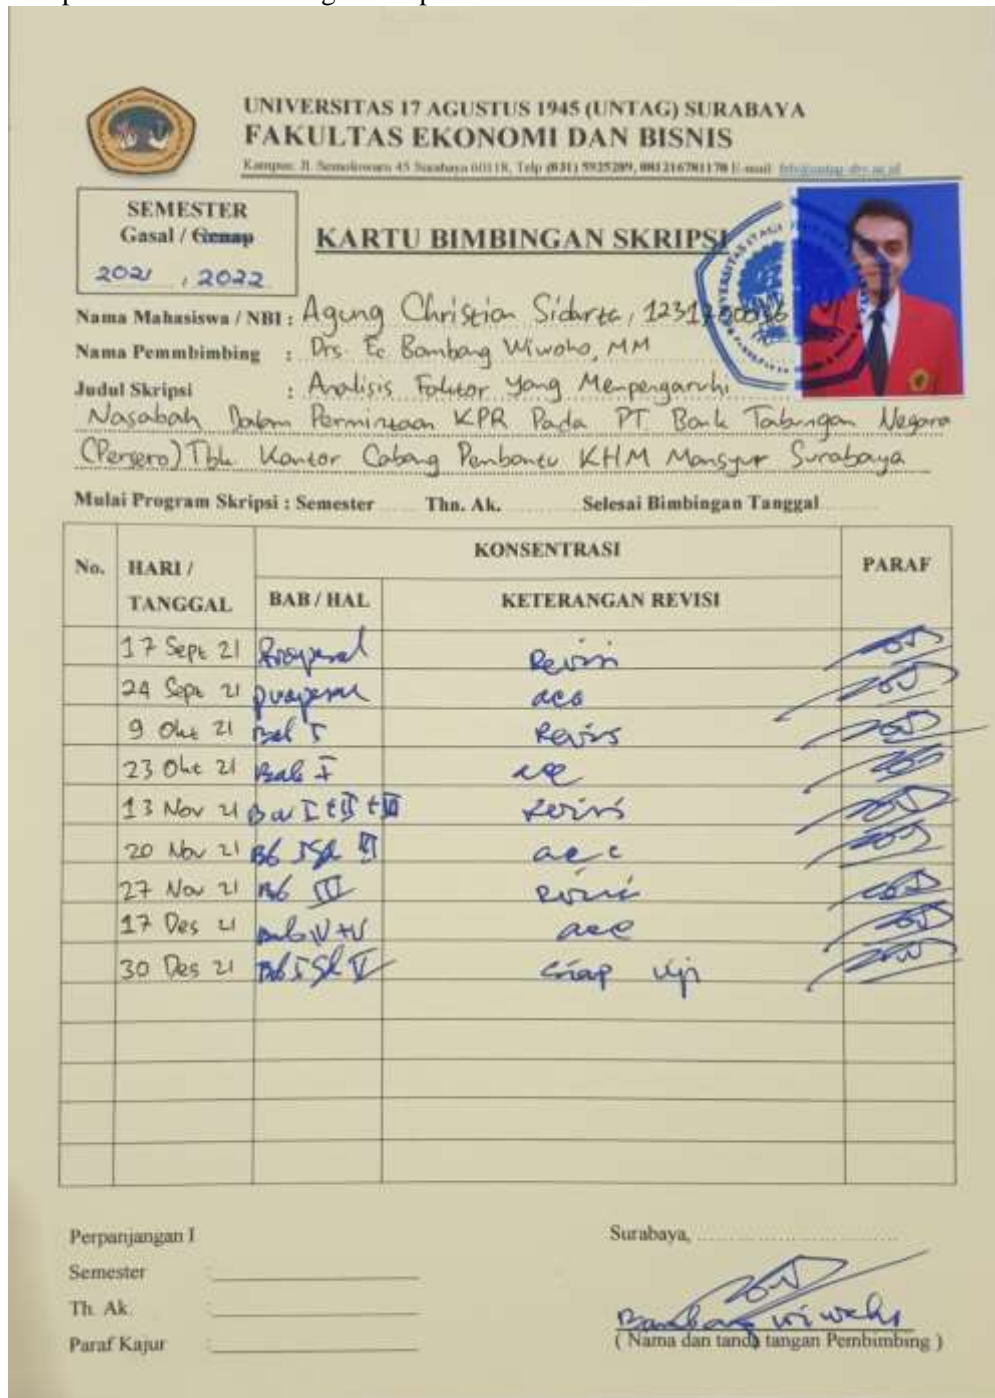 UNIVERSITAS 17 AGUSTUS 1945 (UNTAG) SURABAYA
FAKULTAS EKONOMI DAN BISNIS
Kampus: Jl. Semolowaru 45 Surabaya 60118, Telp (031) 5925289, 081216781170 E-mail:
SEMESTER
Gasal / Genap
2021 , 2022
KARTU BIMBINGAN SKRIPSI
Nama Mahasiswa / NBI : Agung Christian Sidarta,
Nama Pemmbimbing : Drs. Ec Bambang Wiwoho, MM
Judul Skripsi : Analisis Faktor Yang Mempengaruhi
Nasabah Dalam Permintaan KPR Pada PT. Bank Tabungan Negara
(Persero) Tbk Kantor Cabang Pembantu KHM Mansyur Surabaya
Mulai Program Skripsi : Semester Thn. Ak. Selesai Bimbingan Tanggal
No. HARI / TANGGAL KONSENTRASI PARAF
BAB / HAL KETERANGAN REVISI
17 Sept 21 Proposal Revisi
24 Sept 21 proposal acc
9 Okt 21 Bab I Revisi
23 Okt 21 Bab I acc
13 Nov 21 Bab I + II + III Revisi
20 Nov 21 acc
27 Nov 21 Bab III Revisi
17 Des 21 Bab IV + V acc
30 Des 21 siap uji
Perpanjangan I
Semester :
Th. Ak. :
Paraf Kajur :
Surabaya,
Bambang Wiwoho
( Nama dan tanda tangan Pembimbing )